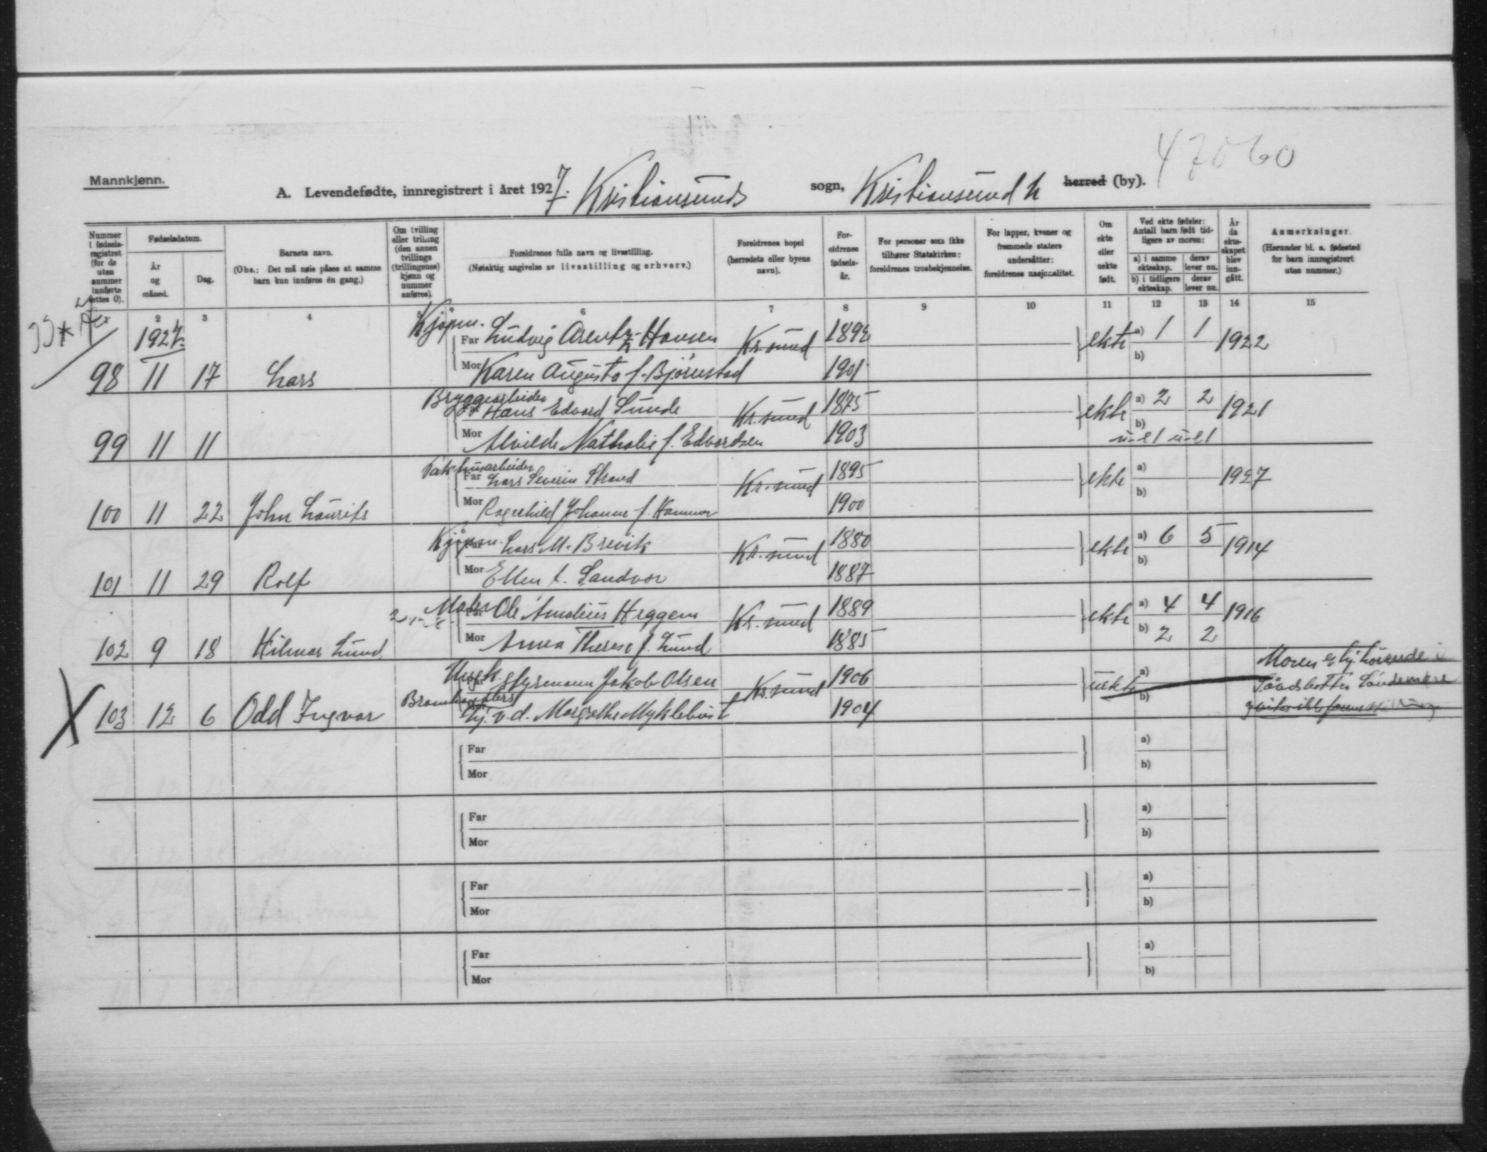 47060
Mannkjønn.
A. Levendefødte, innregistrert i året 1927. Kristiansunds sogn, Kristiansund N herred (by).
Nummer i fødselsregistret (for de uten nummer innførte settes 0).
Fødselsdatum.
År og måned.
Dag.
Barnets navn.
(Obs.: Det må nøie påses at samme barn kun innføres én gang.)
Om tvilling eller trilling (den annen tvillings (trillingenes) kjønn og nummer anføres).
Foreldrenes fulle navn og livsstilling.
(Nøiaktig angivelse av livsstilling og erhverv.)
Foreldrenes bopel (herredets eller byens navn).
Foreldrenes fødselsår.
For personer som ikke tilhører Statskirken: foreldrenes trosbekjennelse.
For lapper, kvener og fremmede staters undersåtter: foreldrenes nasjonalitet.
Om ekte eller uekte født.
Ved ekte fødsler: Antall barn født tidligere av moren:
a) i samme ekteskap. derav lever nu.
b) i tidligere ekteskap. derav lever nu.
År da ekteskapet blev inngått.
Anmerkninger.
(Herunder bl. a. fødested for barn innregistrert uten nummer.)
2 3 4 5 6 7 8 9 10 11 12 13 14 15
1927. Kjøpm. Far Ludvig Arentz Hansen Kr.sund 1892 ekte a) 1 1 1922
98 11 17 Lars Mor Karen Augusta f. Bjørnstad 1901 b)
Bryggearbeider Hans Edvard Sunde Kr.sund 1895 ekte a) 2 2 1921
99 11 11 Mor Alvilde Nathalie f. Edvardsen 1903
Far Lars Severin Strand Kr.sund 1895 ekte a) 1927
100 11 22 John Laurits Mor Ragnhild Johanne f. Hammer 1900 b)
Kjøpm. Lars M. Brevik Kr.sund 1880 ekte a) 6 5 1914
101 11 29 Rolf Mor Ellen f. Sandvor 1887 b)
Maler Ole Amalius Heggem Kr.sund 1889 ekte a) 4 4 1916
102 9 18 Hilmar Lund Mor Anna Therese f. Lund 1885 b) 2 2
Ungk. styrmann Jakob Olsen Kr.sund 1906 uekte a) Moren er hjhørende i
103 12 6 Odd Ingvar v.d. Margrethe Myklebust 1904 b)
Far a)
Mor b)
Far a)
Mor b)
Far a)
Mor b)
Far a)
Mor b)